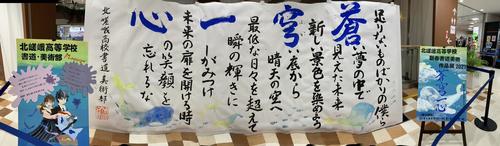 北嵯峨高等学校
書道・美術部
足りないものばかりの僕ら
蒼い夢の中で
見えた未来
新しい景色を染めよう
穹い底から
晴天の空へ
最低な日々を超えて
瞬の輝きに
一しがみつけ
未来の扉を開ける時
心の笑顔を
忘れるな
北嵯峨高校書道美術部
北嵯峨高等学校
新春書道美術
作品展 2023
蒼穹一心